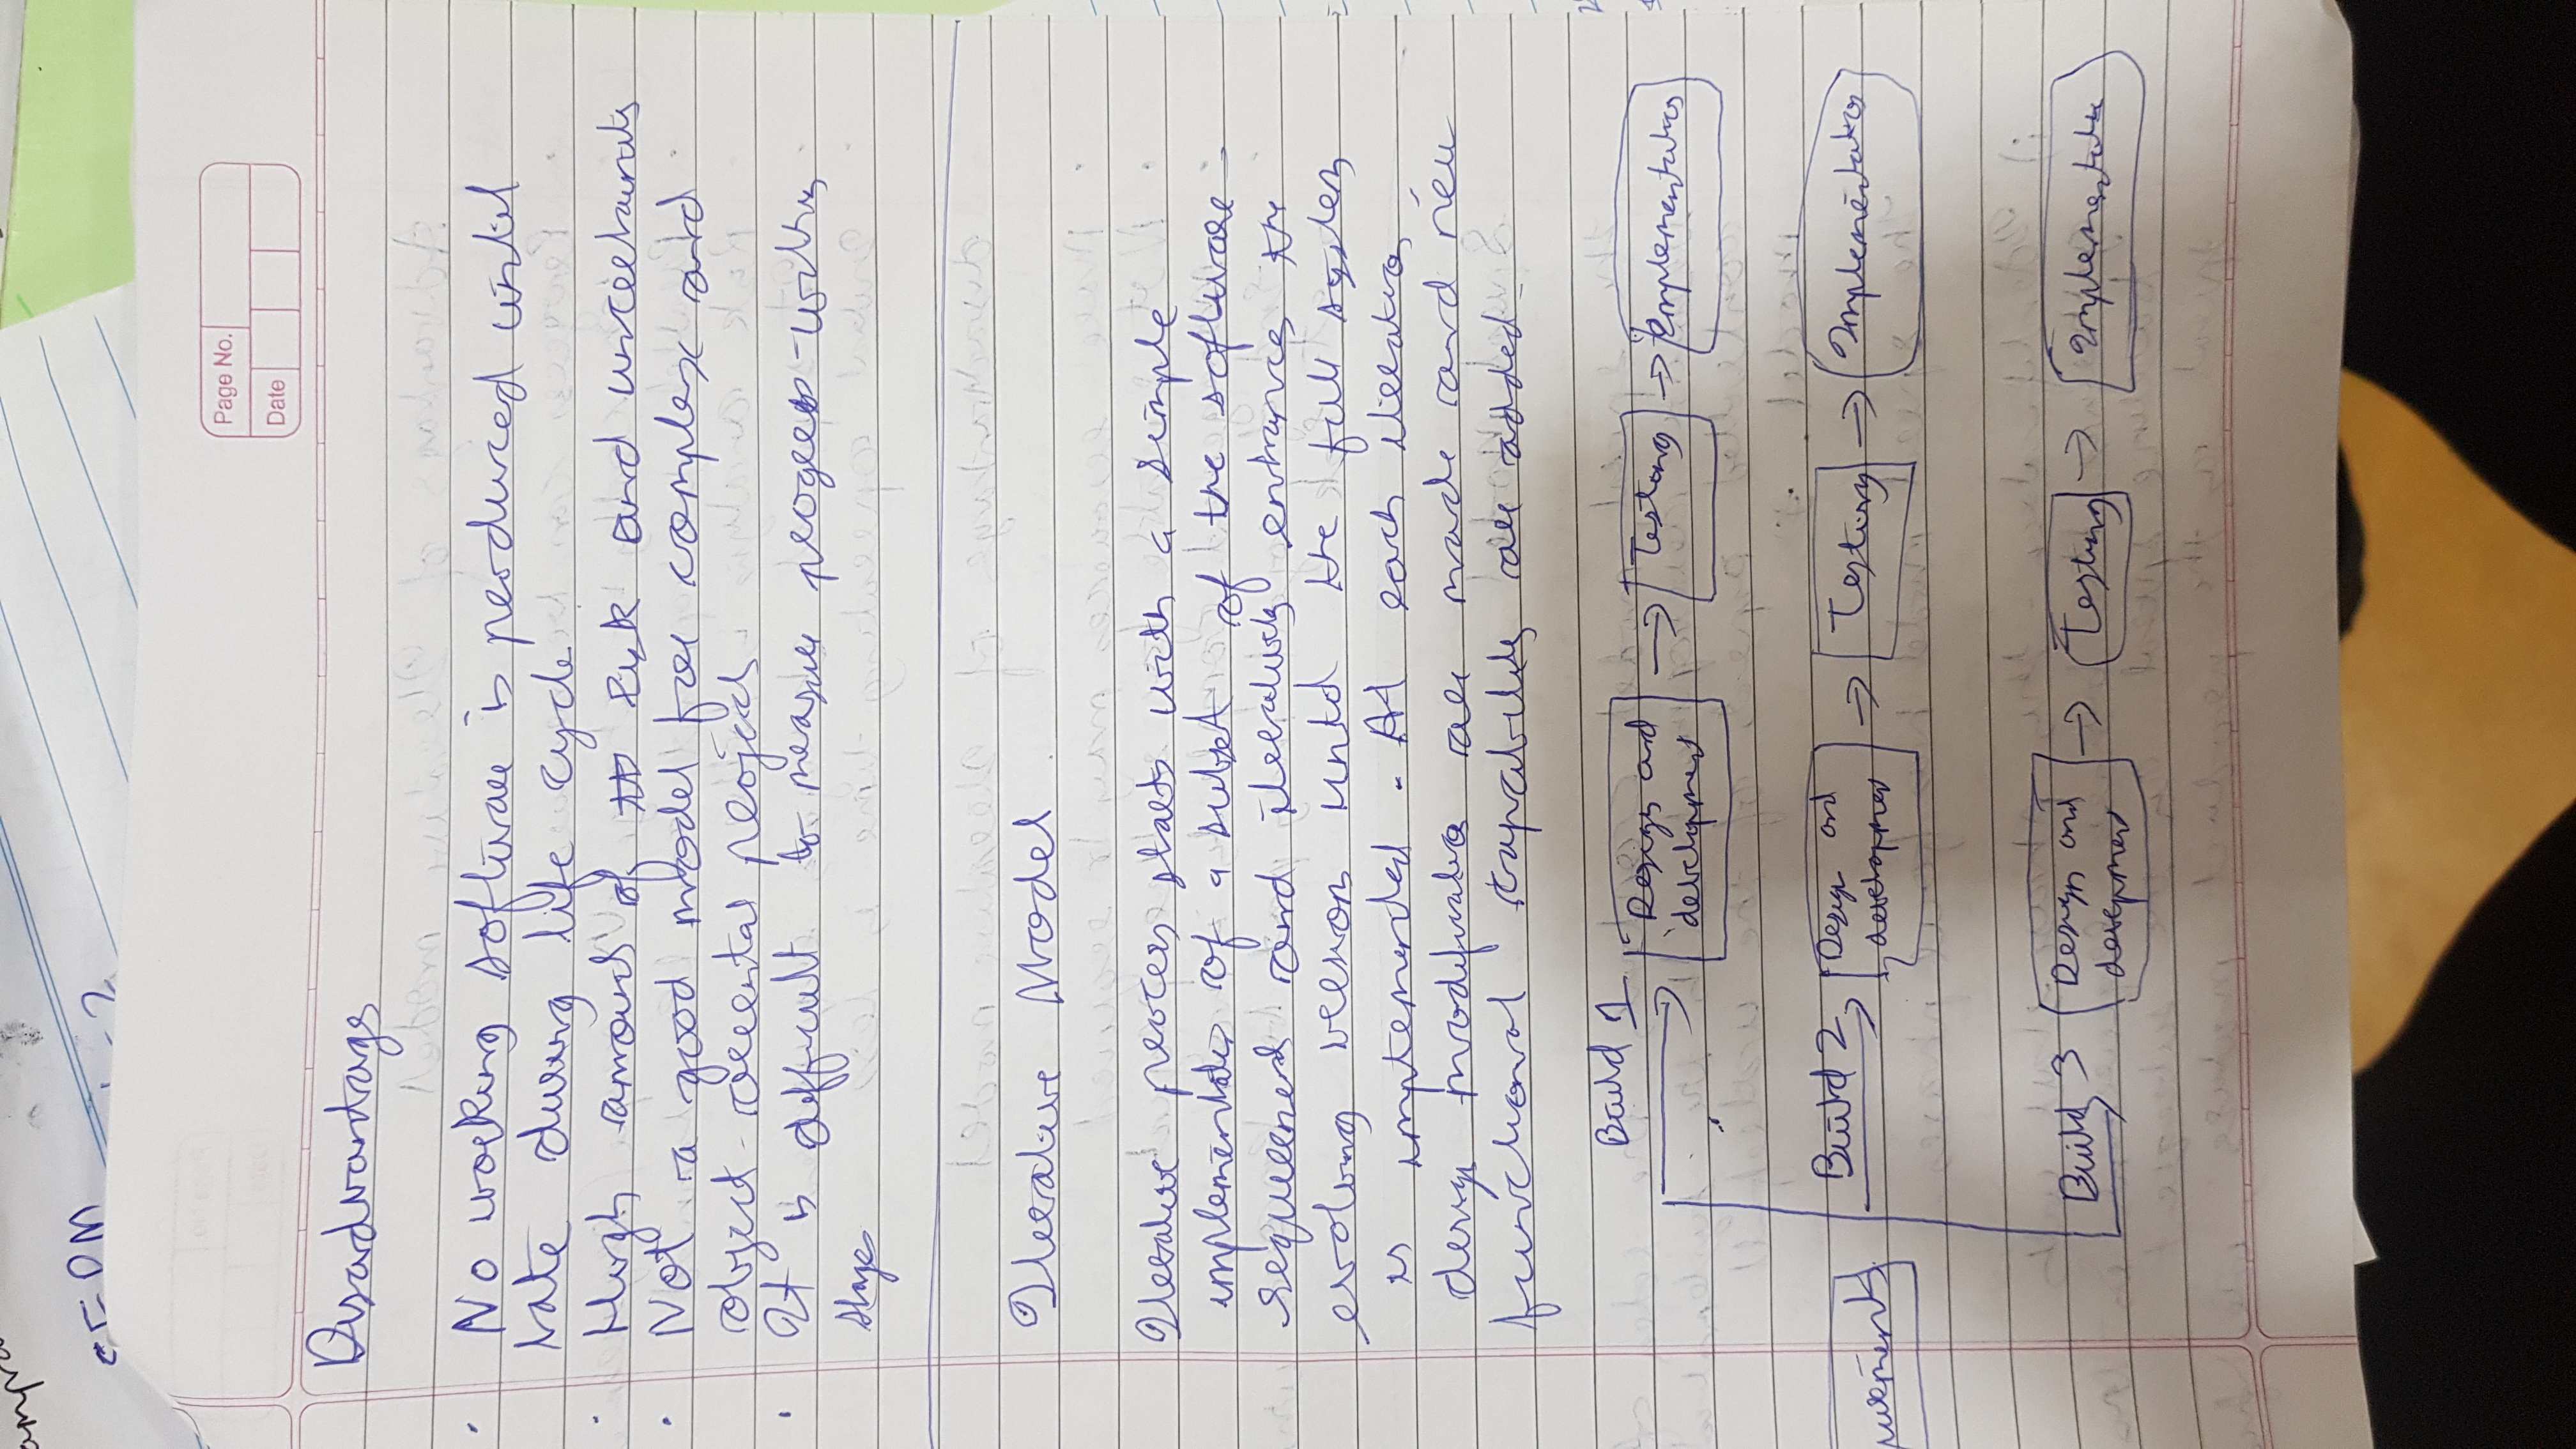 SEPM
-2
Page No.
Date
Disadvantages
· No working software is produced until
late during life cycle
· High amount of risk and uncertainty
· Not a good model for complex and
object-oriented projects
· It is difficult to measure progress within
stages
Iterative Model
Iterative process starts with a simple
implementation of a subset of the software
requirements and iteratively enhances the
evolving versions until the full system
is implemented. At each iteration
design modification are made and new
functional capabilities are added
Build 1
Design and
development
Testing
Implementation
uirements
Build 2
Design and
development
Testing
Implementation
Build 3
Design and
deveopment
Testing
Implementation